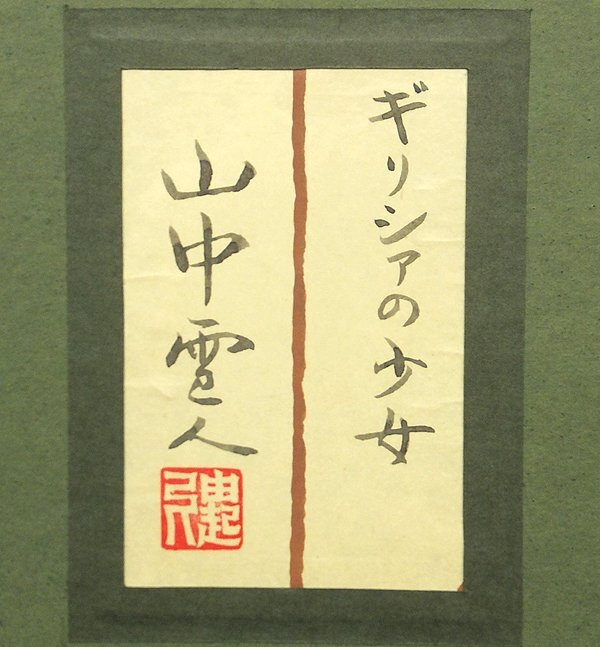 ギリシアの少女
山中雪人